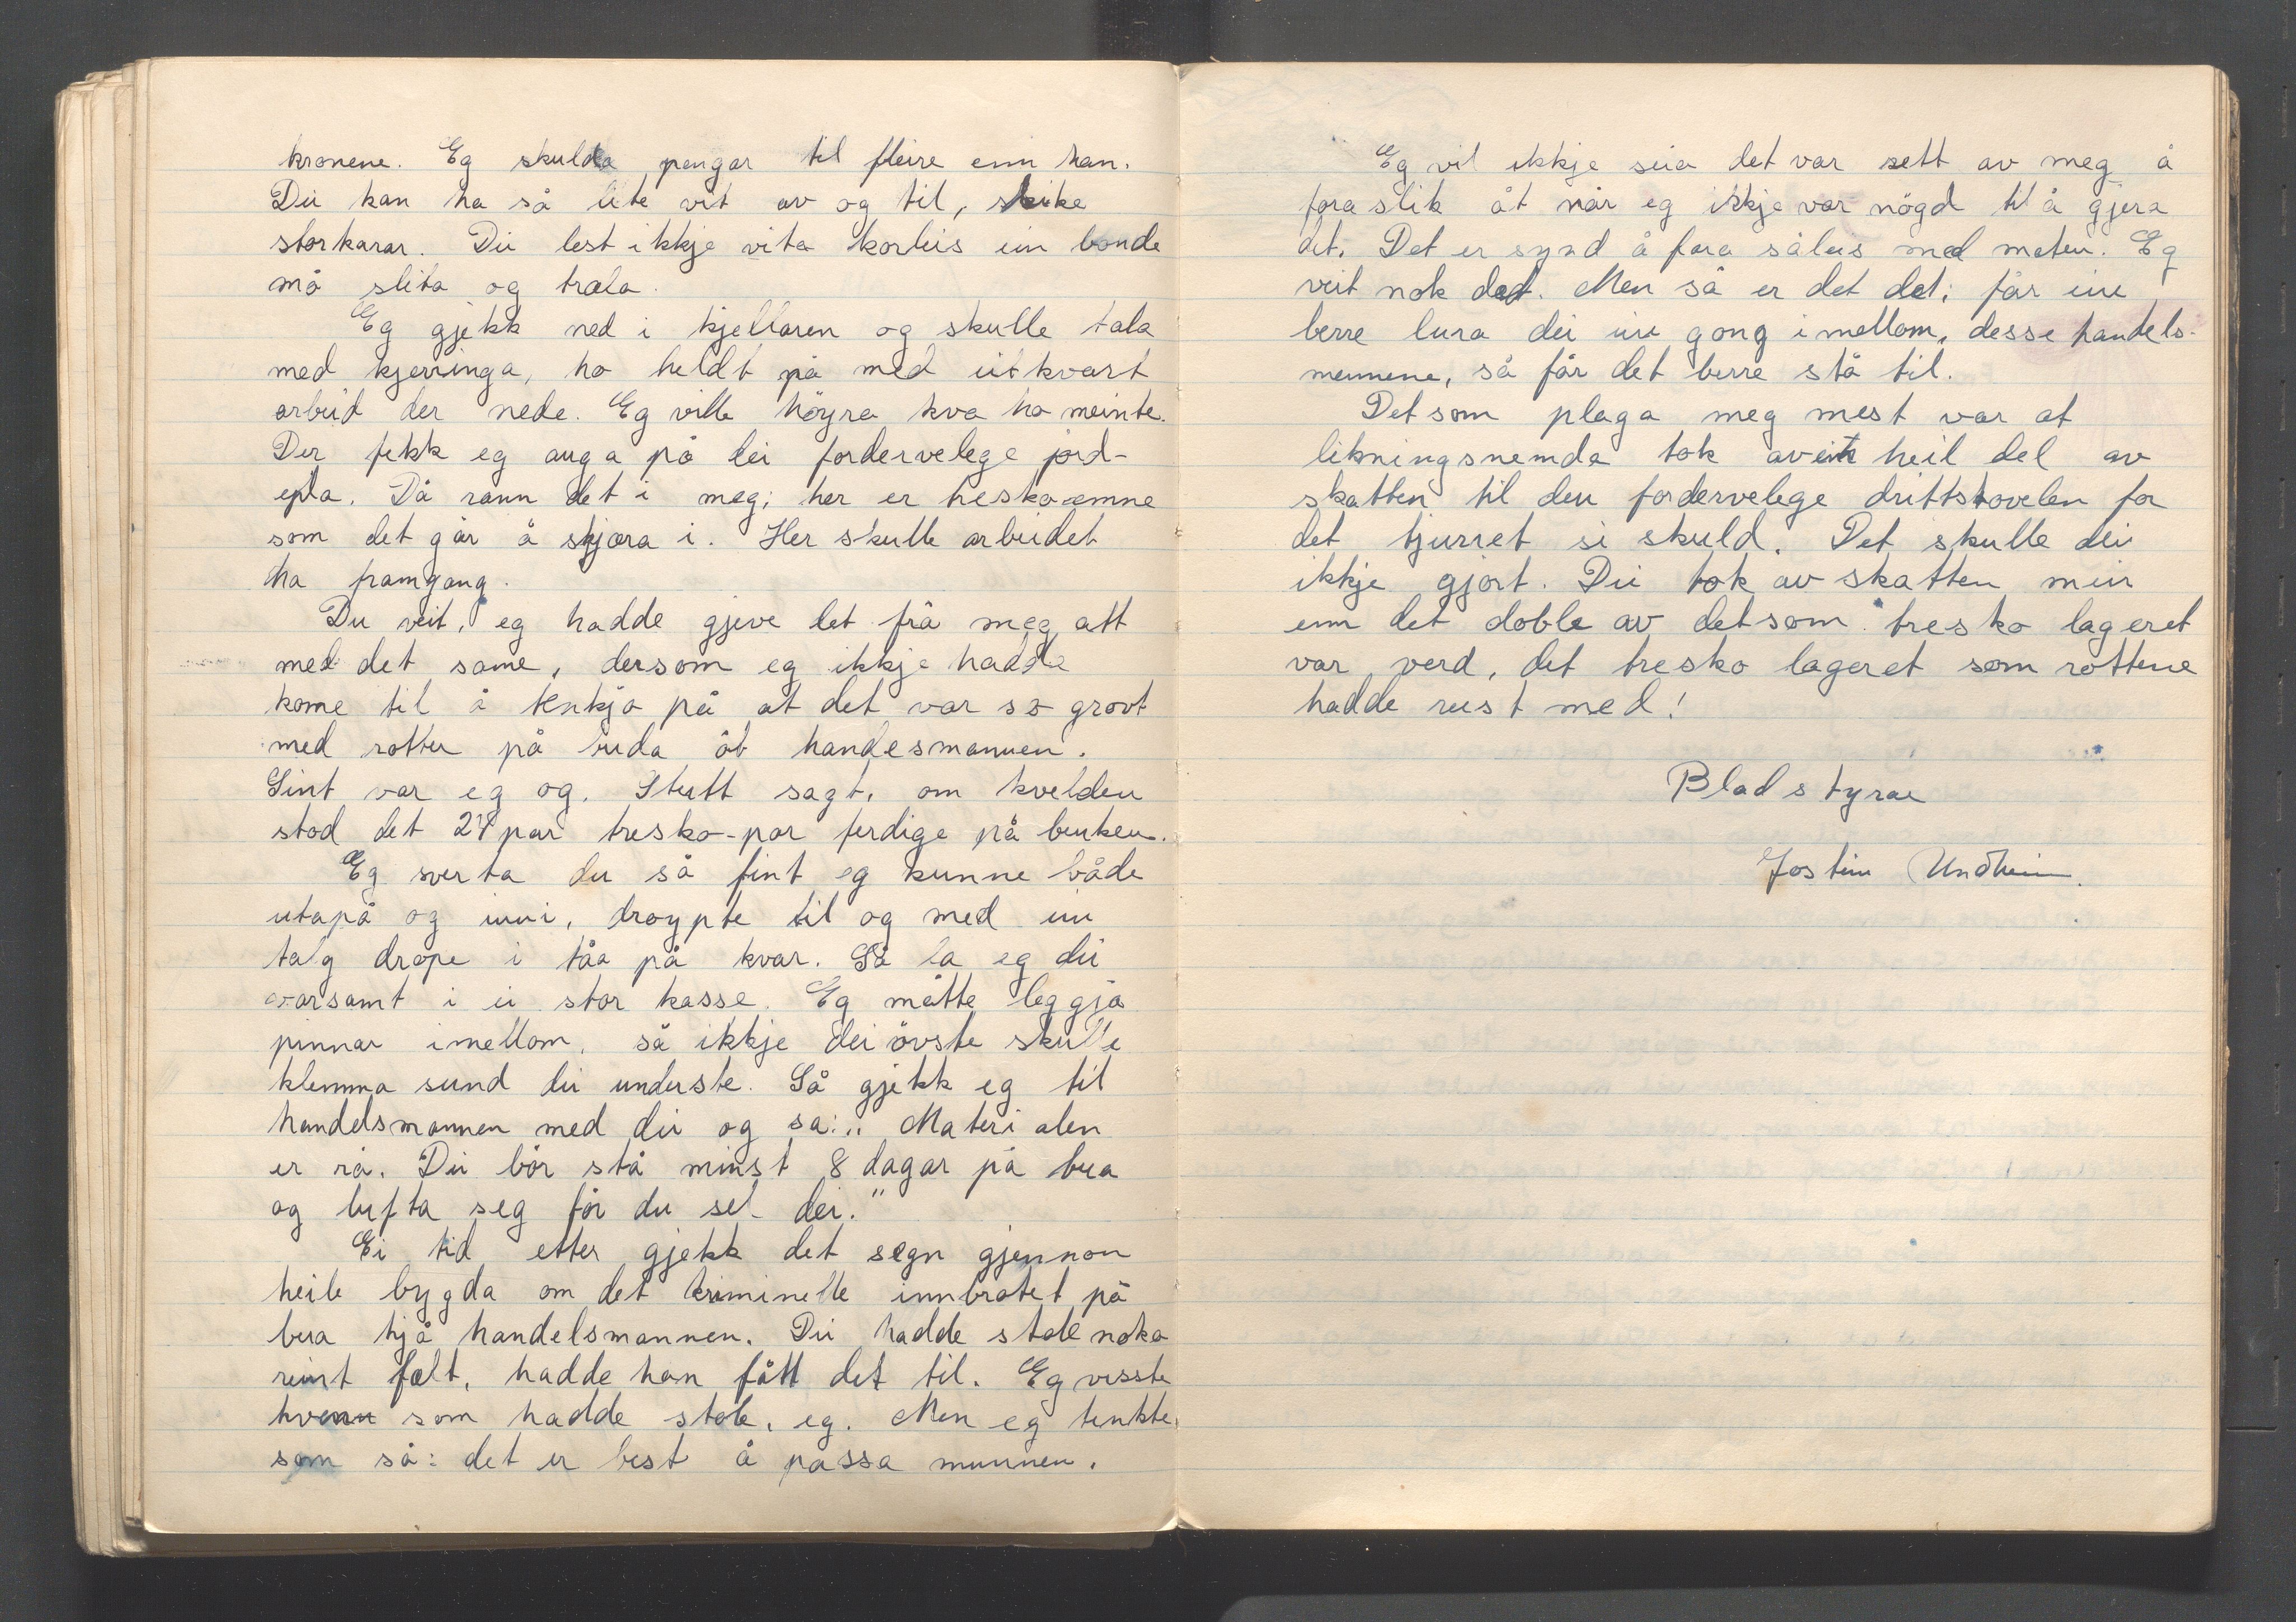 kronene. Eg skulda pengar til fleire enn han.
Dei kan ha så lite vit av og til, slike
storkarar. Dei lest ikkje vita korleis ein bonde
må slita og træla.
Eg gjekk ned i kjellaren og skulle tala
med kjerringa, ho heldt på med eitkvart
arbeid der nede. Eg ville höyra kva ho meinte.
Der fekk eg auga på dei fordervelege jord-
epla. Då rann det i meg; her er tresko-emne
som det går å skjæra i. Her skulle arbeidet
ha framgang.
Du veit, eg hadde gjeve det frå meg att
med det same, dersom eg ikkje hadde
kome til å tenkja på at det var så grovt
med rotter på buda åt handesmannen.
Sint var eg og. Stutt sagt, om kvelden
stod det 24 par tresko-par ferdige på benken.
Eg sverta dei så fint eg kunne både
utapå og inni, drøypte til og med ein
talg drope i tåa på kvar. Så la eg dei
varsamt i ei stor kasse. Eg måtte leggja
pinnar imellom, så ikkje dei övste skulle
klemma sund dei underste. Så gjekk eg til
handelsmannen med dei og sa: „ Materialen
er rå. Dei bör stå minst 8 dagar på bua
og lufta seg för du sel dei."
Ei tid etter gjekk det segn gjennon
heile bygda om det kriminelle innbrotet på
bua hjå handelsmannen. Dei hadde stole noko
reint fælt, hadde han fått det til. Eg visste
kvenn som hadde stole, eg. Men eg tenkte
som så: det er best å passa munnen.
Eg vil ikkje seia det var rett av meg å
fara slik åt når eg ikkje var nögd til å gjera
det. Det er synd å fara såleis med maten. Eg
veit nok det. Men så er det det; får ein
berre lura dei ein gong imellom, desse handels-
mennene, så får det berre stå til.
Det som plaga meg mest var at
likningsnemda tok av ein heil del av
skatten til den fordervelege drittstovelen for
det tjurret si skuld. Det skulle dei
ikkje gjort. Dei tok av skatten meir
enn det doble av det som tresko lageret
var verd, det tresko lageret som rottene
hadde reist med!
Bladstyrar
Jostein Undheim.